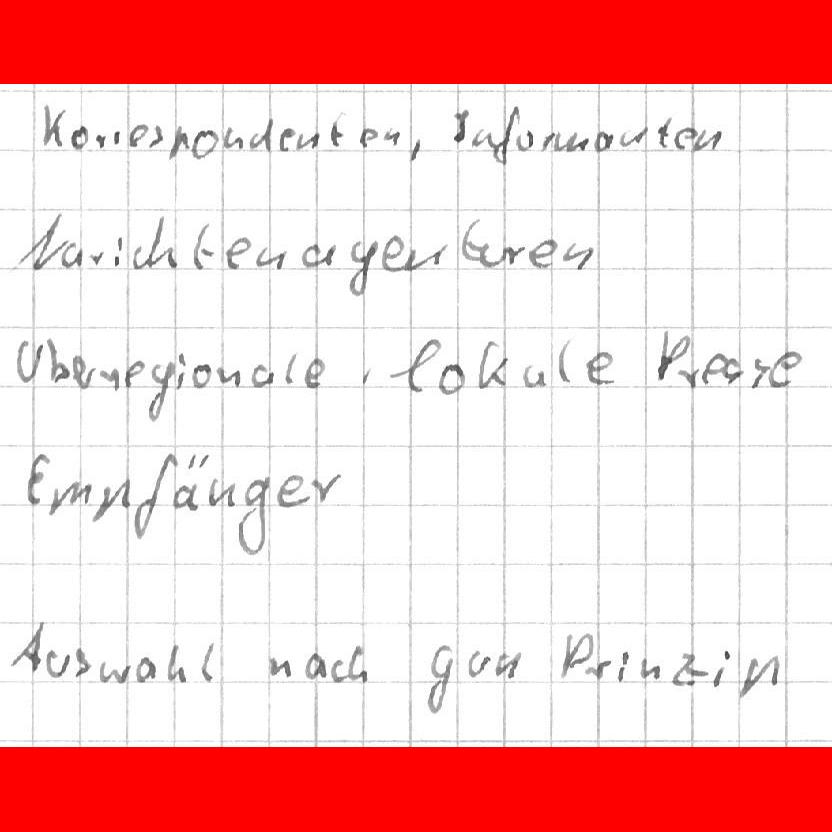 Korrespondenten, Informanten
Narichtenagenturen
Überregionale, lokale Presse
Empfänger
Auswahl nach Prinzip